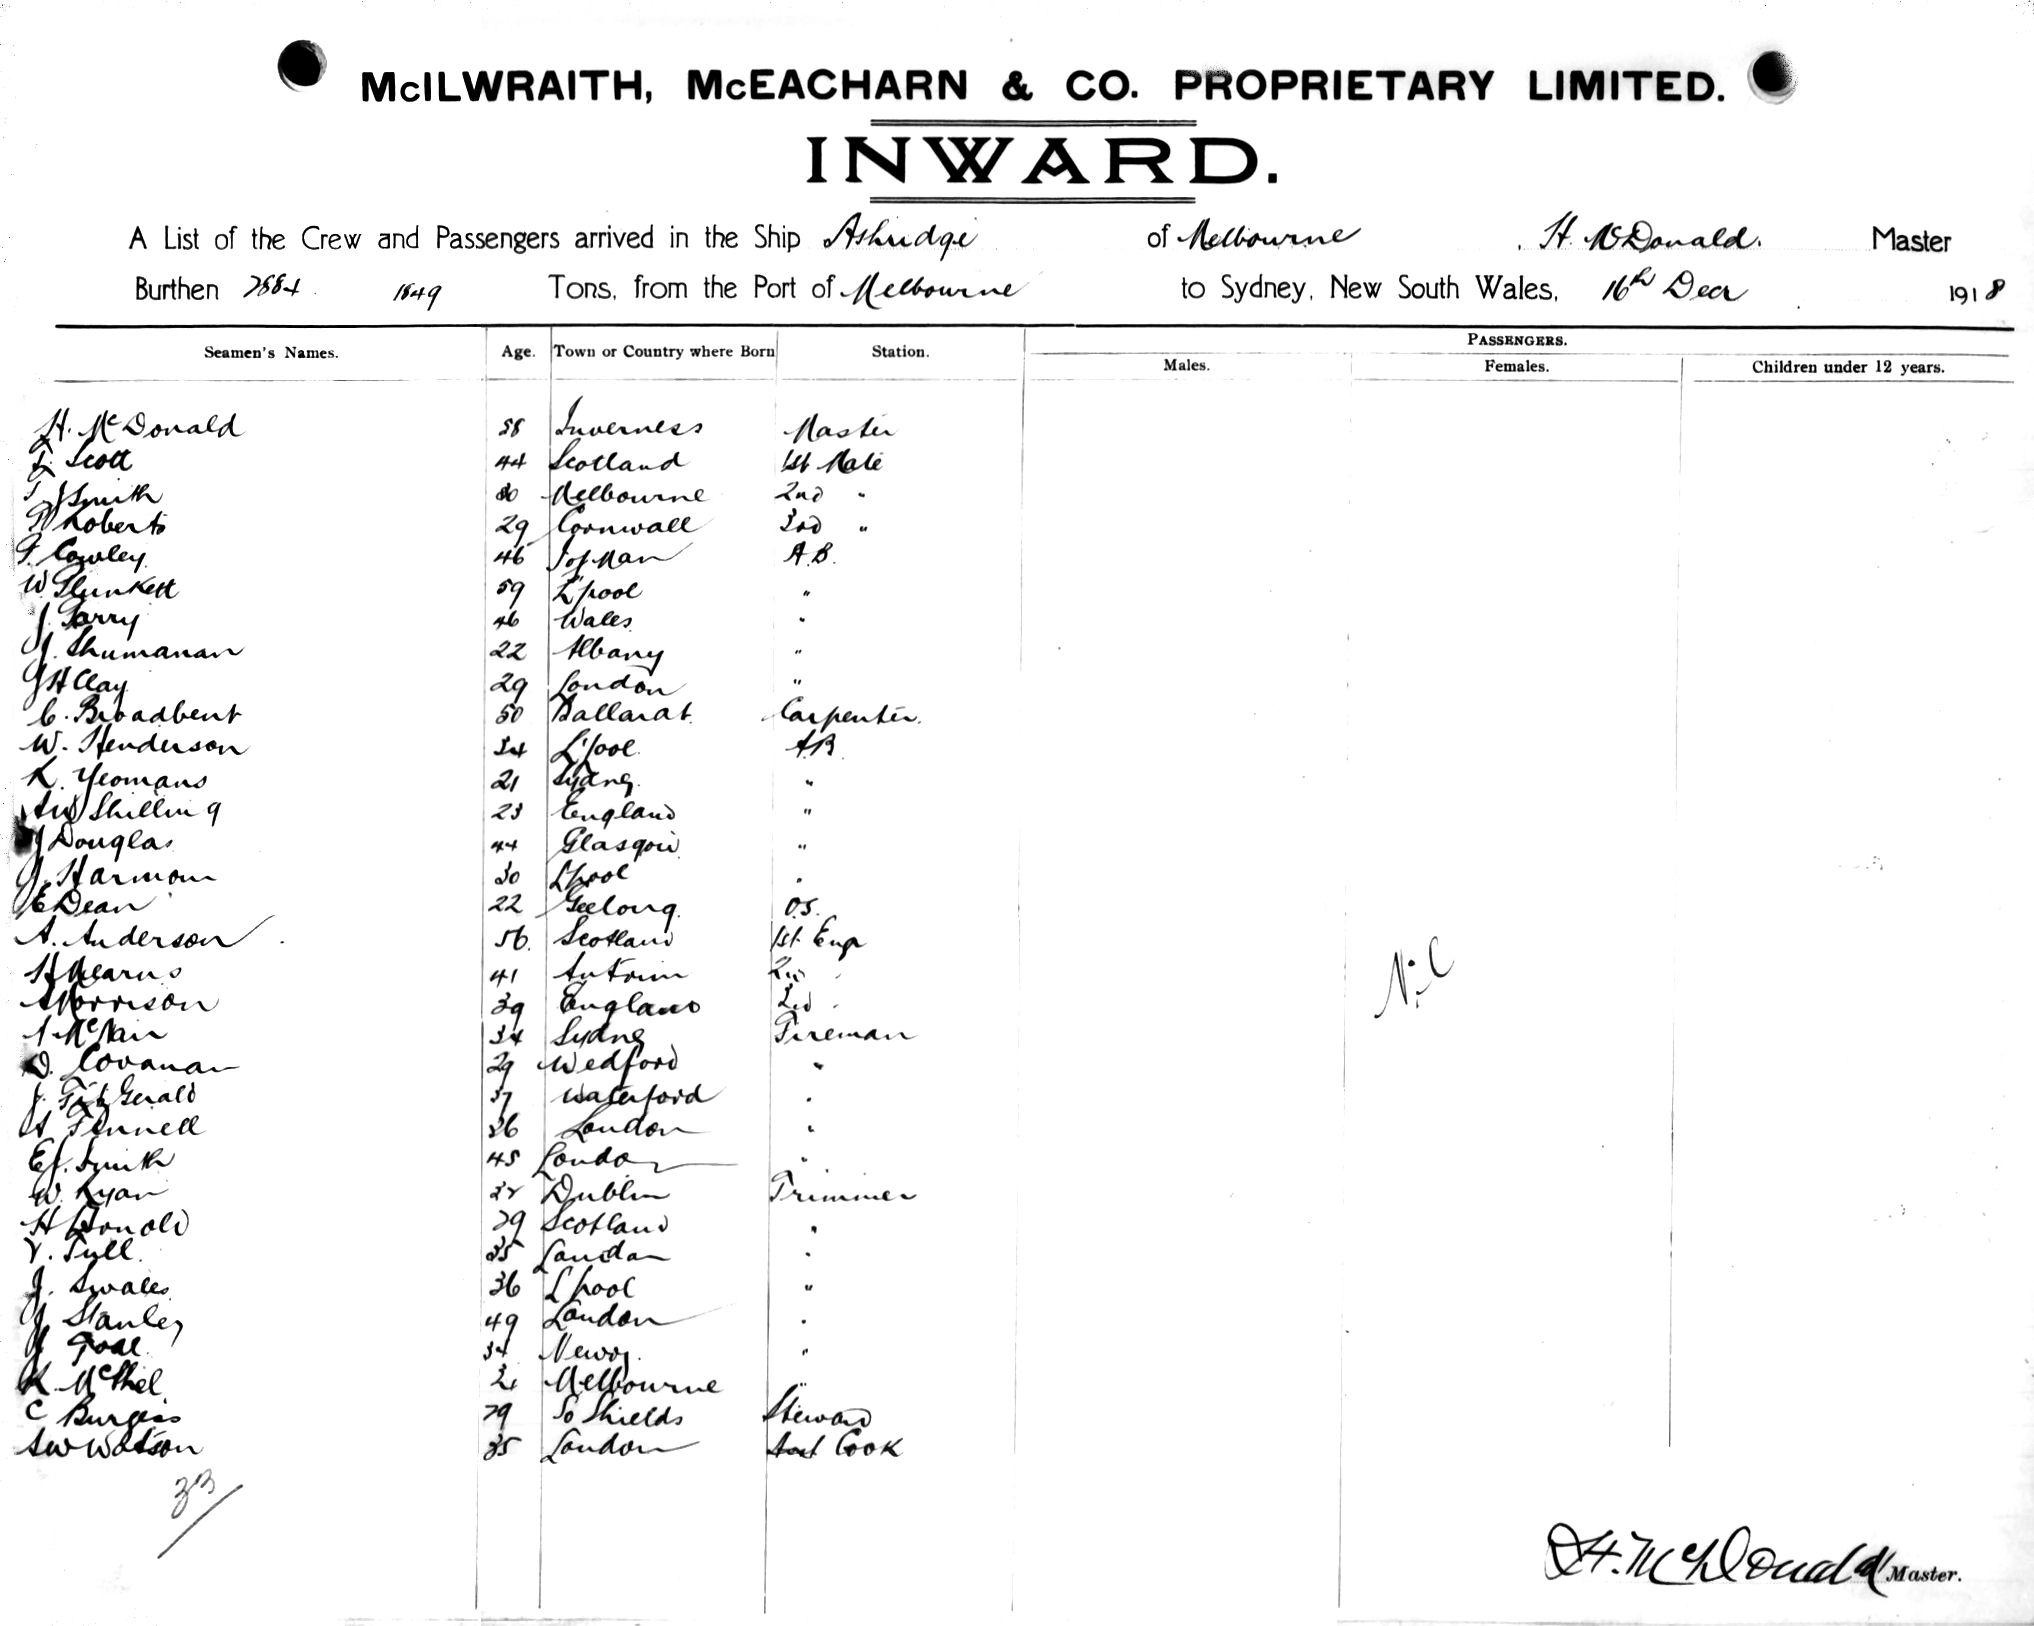 McILWRAITH, McEACHARN & CO. PROPRIETARY LIMITED.
INWARD.
A List of the Crew and Passengers arrived in the Ship Ashridge of Melbourne, H. McDonald. Master
Burthen 2884 1849 Tons, from the Port of Melbourne to Sydney, New South Wales, 16th Decr 1918
Passengers.
Seamen's Names. Age. Town or Country where Born Station. Males. Females. Children under 12 years.
H. McDonald 58 Inverness Master
Scott 44 Scotland 1st Mate
Smith 30 Melbourne 2nd "
Roberts 29 Cornwall 3rd "
Cowley 46 I of Man A.B.
W Plunkett 59 L'pool "
J. Parry 46 Wales "
J. Shumanan 22 Albany "
J H Clay 29 London "
C. Broadbent 50 Ballarat Carpenter.
W. Henderson 34 L'pool AB
K. Yeomans 21 Sydney "
Shilling 23 England "
J Douglas 44 Glasgow "
J. Harmon 30 L'pool "
E Dean 22 Geelong O.S.
A. Anderson 56. Scotland 1st Engr
H Mearns 41 Antrim 2nd "
A Morrison 39 England 3rd "
A McNair 34 Sydney Fireman
D. Covanan 29 Wedford "
J. FitzGerald 37 Waterford "
Fennell 36 London "
E J. Smith 45 London "
W. Ryan Dublin Trimmer
H Donald 29 Scotland "
V. Tull 35 London "
J. Swales 36 L'pool "
J Stanley 49 London "
34 "
K. McPhel Melbourne "
C Burgess 29 So Shields Steward
A W Watson 35 London Cook
33
Nil
H. McDonald Master.